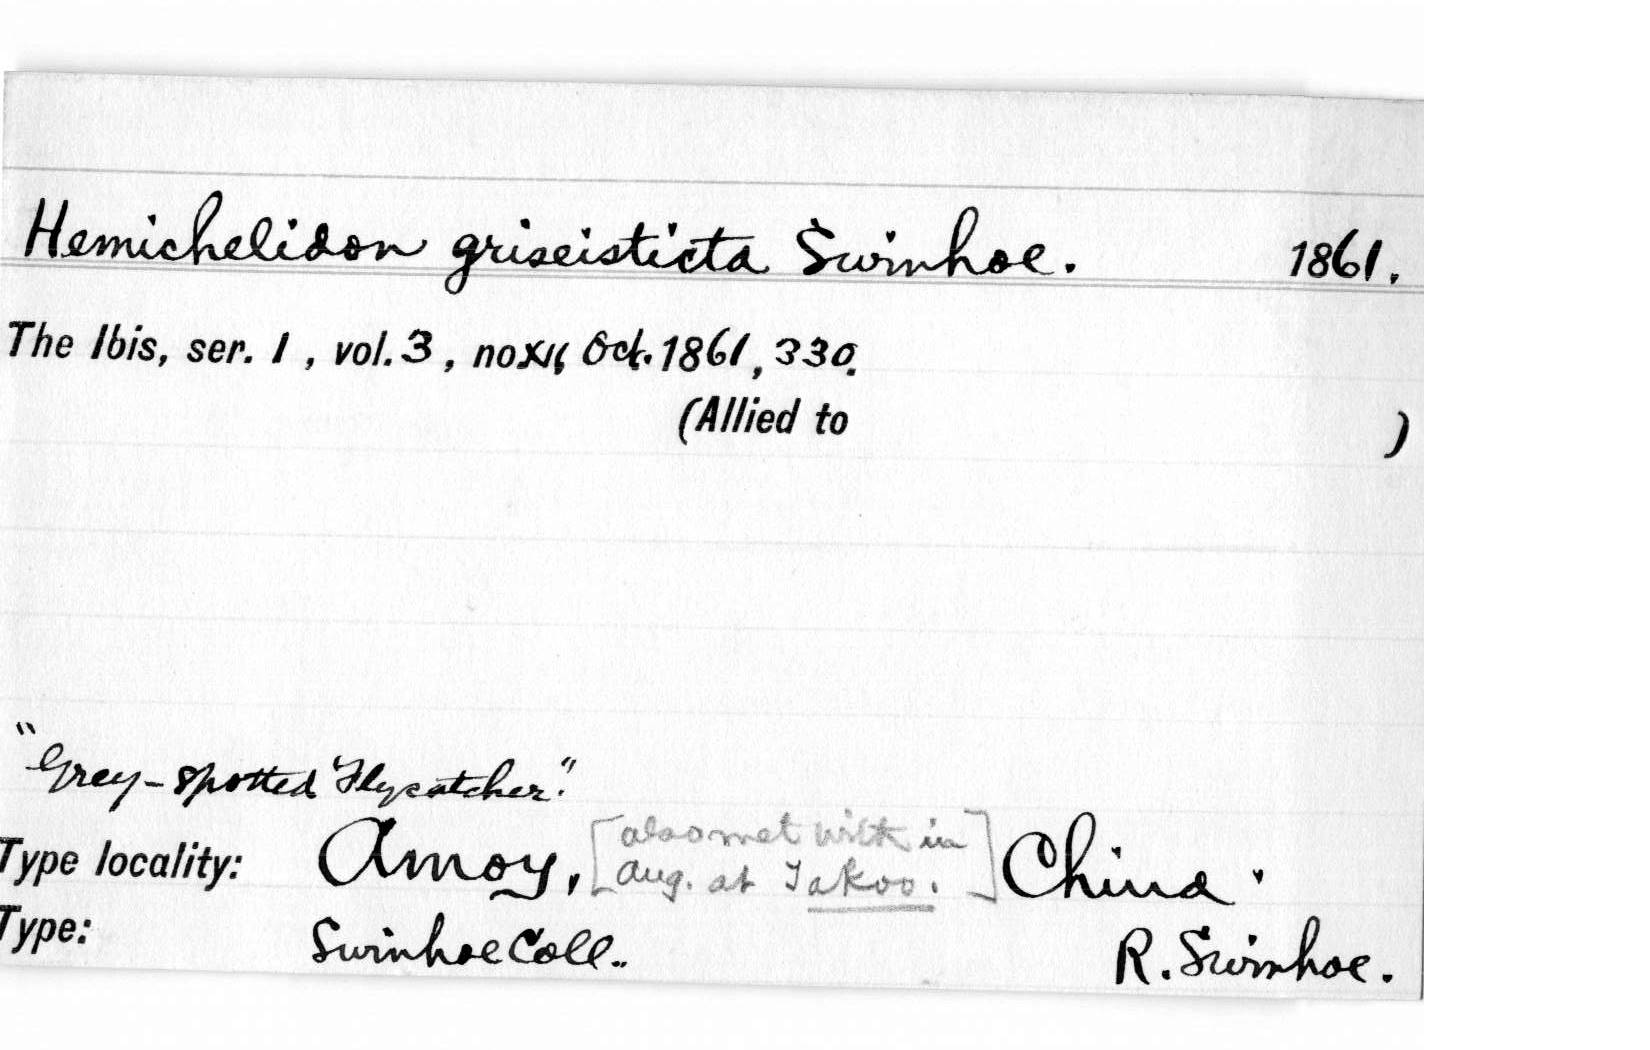 Hemichelidon griseisticta Swinhoe. 1861.
The Ibis, ser. 1, vol. 3, no XII, Oct. 1861, 330.
(Allied to )
"Grey-spotted Flycatcher."
[also met with in
Type locality: Amoy, Aug. at Takoo.] China.
Type: Swinhoe Coll. R. Swinhoe.